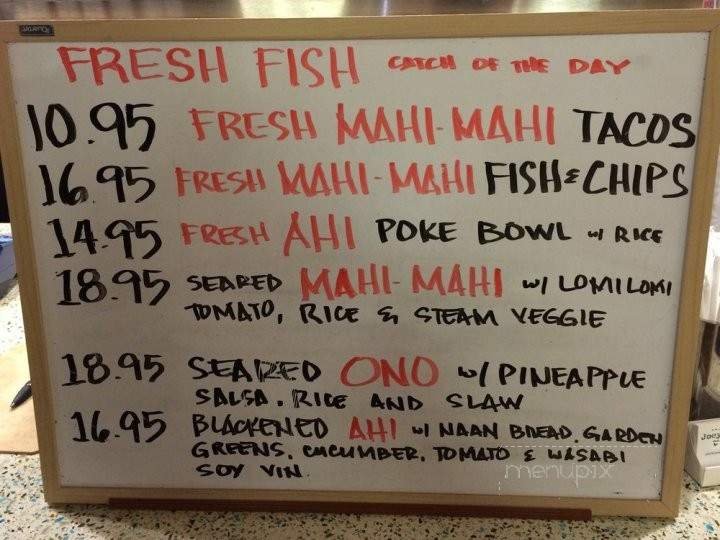 Quartet
FRESH FISH CATCH OF THE DAY
10.95 FRESH MAHI-MAHI TACOS
16.95 FRESH MAHI-MAHI FISH & CHIPS
14.95 FRESH AHI POKE BOWL W/ RICE
18.95 SEARED MAHI-MAHI W/ LOMI LOMI
TOMATO, RICE & STEAM VEGGIE
18.95 SEARED ONO W/ PINEAPPLE
SALSA. RICE AND SLAW
16.95 BLACKENED AHI W/ NAAN BREAD. GARDEN
GREENS. CUCUMBER. TOMATO & WASABI
SOY VIN.
menupix